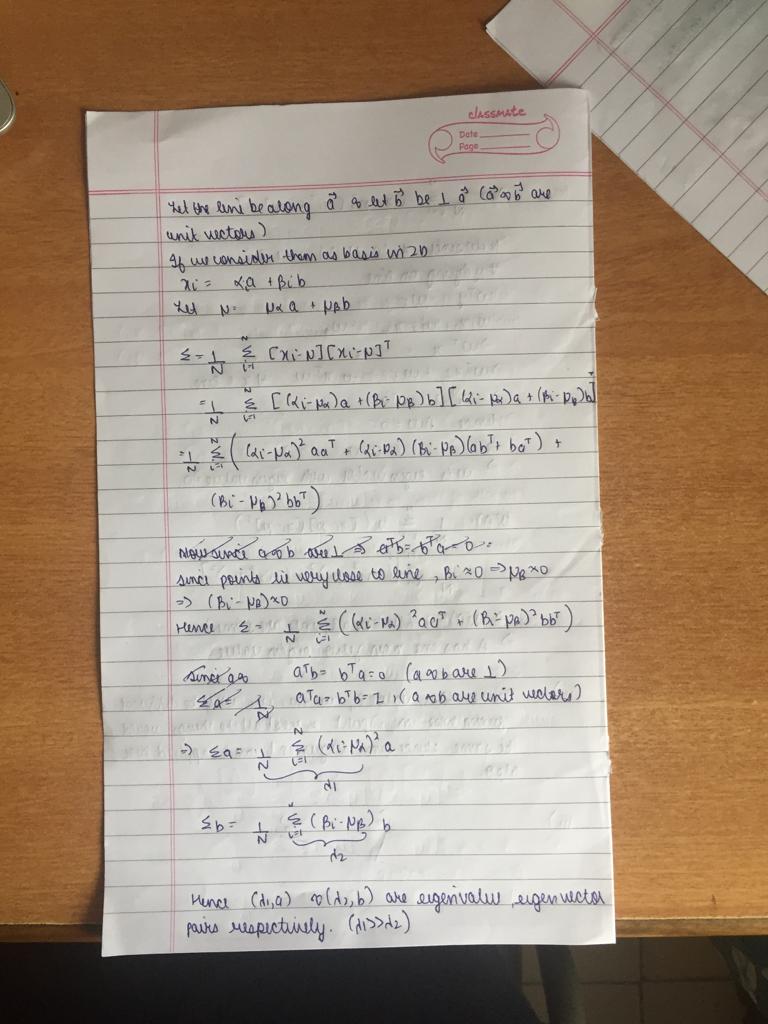 classmate
Date
Page
Let the line be along a⃗ & let b⃗ be ⊥ a⃗ (a⃗ & b⃗ are
unit vectors)
If we consider them as basis in 2D
xi = αia + βib
Let μ = μαa + μβb
Σ = 1/N Σ_{i=1}^{N} [xi-μ][xi-μ]ᵀ
= 1/N Σ_{i=1}^{N} [(αi-μα)a + (βi-μβ)b][(αi-μα)a + (βi-μβ)b]ᵀ
= 1/N Σ_{i=1}^{N} ((αi-μα)² aaᵀ + (αi-μα)(βi-μβ)(abᵀ + baᵀ) +
(βi-μβ)² bbᵀ)
Now since a & b are ⊥ ⇒ aᵀb = bᵀa = 0
since points lie very close to line, βi ≈ 0 ⇒ μβ ≈ 0
⇒ (βi-μβ) ≈ 0
Hence Σ = 1/N Σ_{i=1}^{N} ((αi-μα)² aaᵀ + (βi-μβ)² bbᵀ)
Since a & aᵀb = bᵀa = 0 (a & b are ⊥)
Σa = 1/N aᵀa = bᵀb = 1, (a & b are unit vectors)
⇒ Σa = 1/N Σ_{i=1}^{N} (αi-μα)² a
λ1
Σb = 1/N Σ_{i=1}^{N} (βi-μβ) b
λ2
Hence (λ1,a) & (λ2,b) are eigenvalue, eigenvector
pairs respectively. (λ1>>λ2)